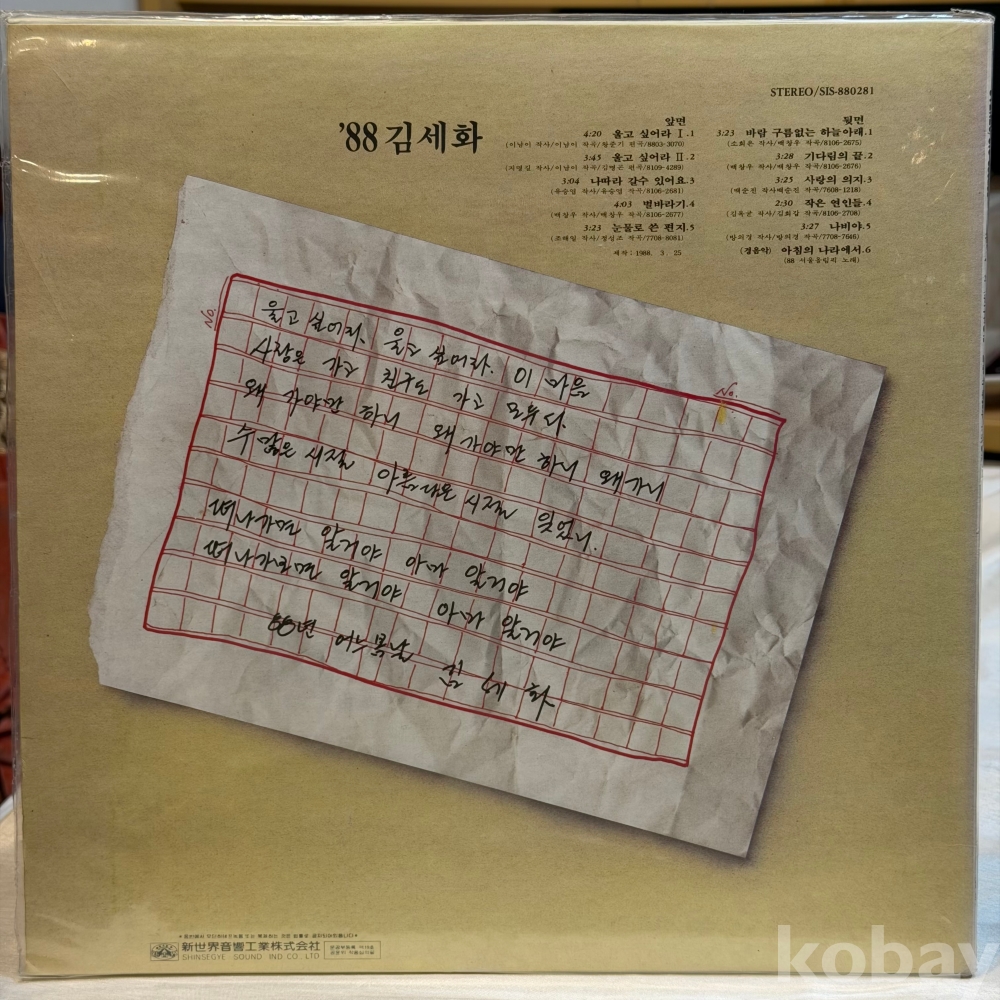 STEREO/SIS-880281
'88 김세화
앞면
4:20 울고 싶어라 Ⅰ.1
(이남이 작사/이남이 작곡/황준기 편곡/8803-3070)
3:45 울고 싶어라 Ⅱ.2
3:04 나따라 갈수 있어요.3
(유승엽 작사/유승엽 작곡/8106-2681)
4:03 별바라기.4
(배창우 작사/배창우 작곡/8106-2677)
3:23 눈물로 쓴 편지.5
(조해일 작사/정성조 작곡/7708-8081)
제작: 1988. 3. 25
뒷면
3:23 바람 구름없는 하늘아래.1
(소희은 작사/배창우 작곡/8106-2675)
3:28 기다림의 끝.2
(배창우 작사/배창우 작곡/8106-2676)
3:25 사랑의 의지.3
(백순진 작사백순진 작곡/7608-1218)
2:30 작은 연인들.4
(김욱균 작사/김희갑 작곡/8106-2708)
3:27 나비야.5
(방의경 작사/방의경 작곡/7708-7646)
(경음악) 아침의 나라에서.6
(88 서울올림픽 노래)
No.
No.
울고 싶어라, 울고 싶어라. 이 마음
사랑은 가고 친구도 가고 모두 다.
왜 가야만 하니 왜 가야만 하니 왜 가니
수많은 시절 아름다운 시절 잊었니.
떠나가면 알거야 아마 알거야
떠나가려면 알거야 아마 알거야
88년 어느 봄날 김세화
新世界音響工業株式会社
SHINSEGYE SOUND IND CO. LTD
kobay